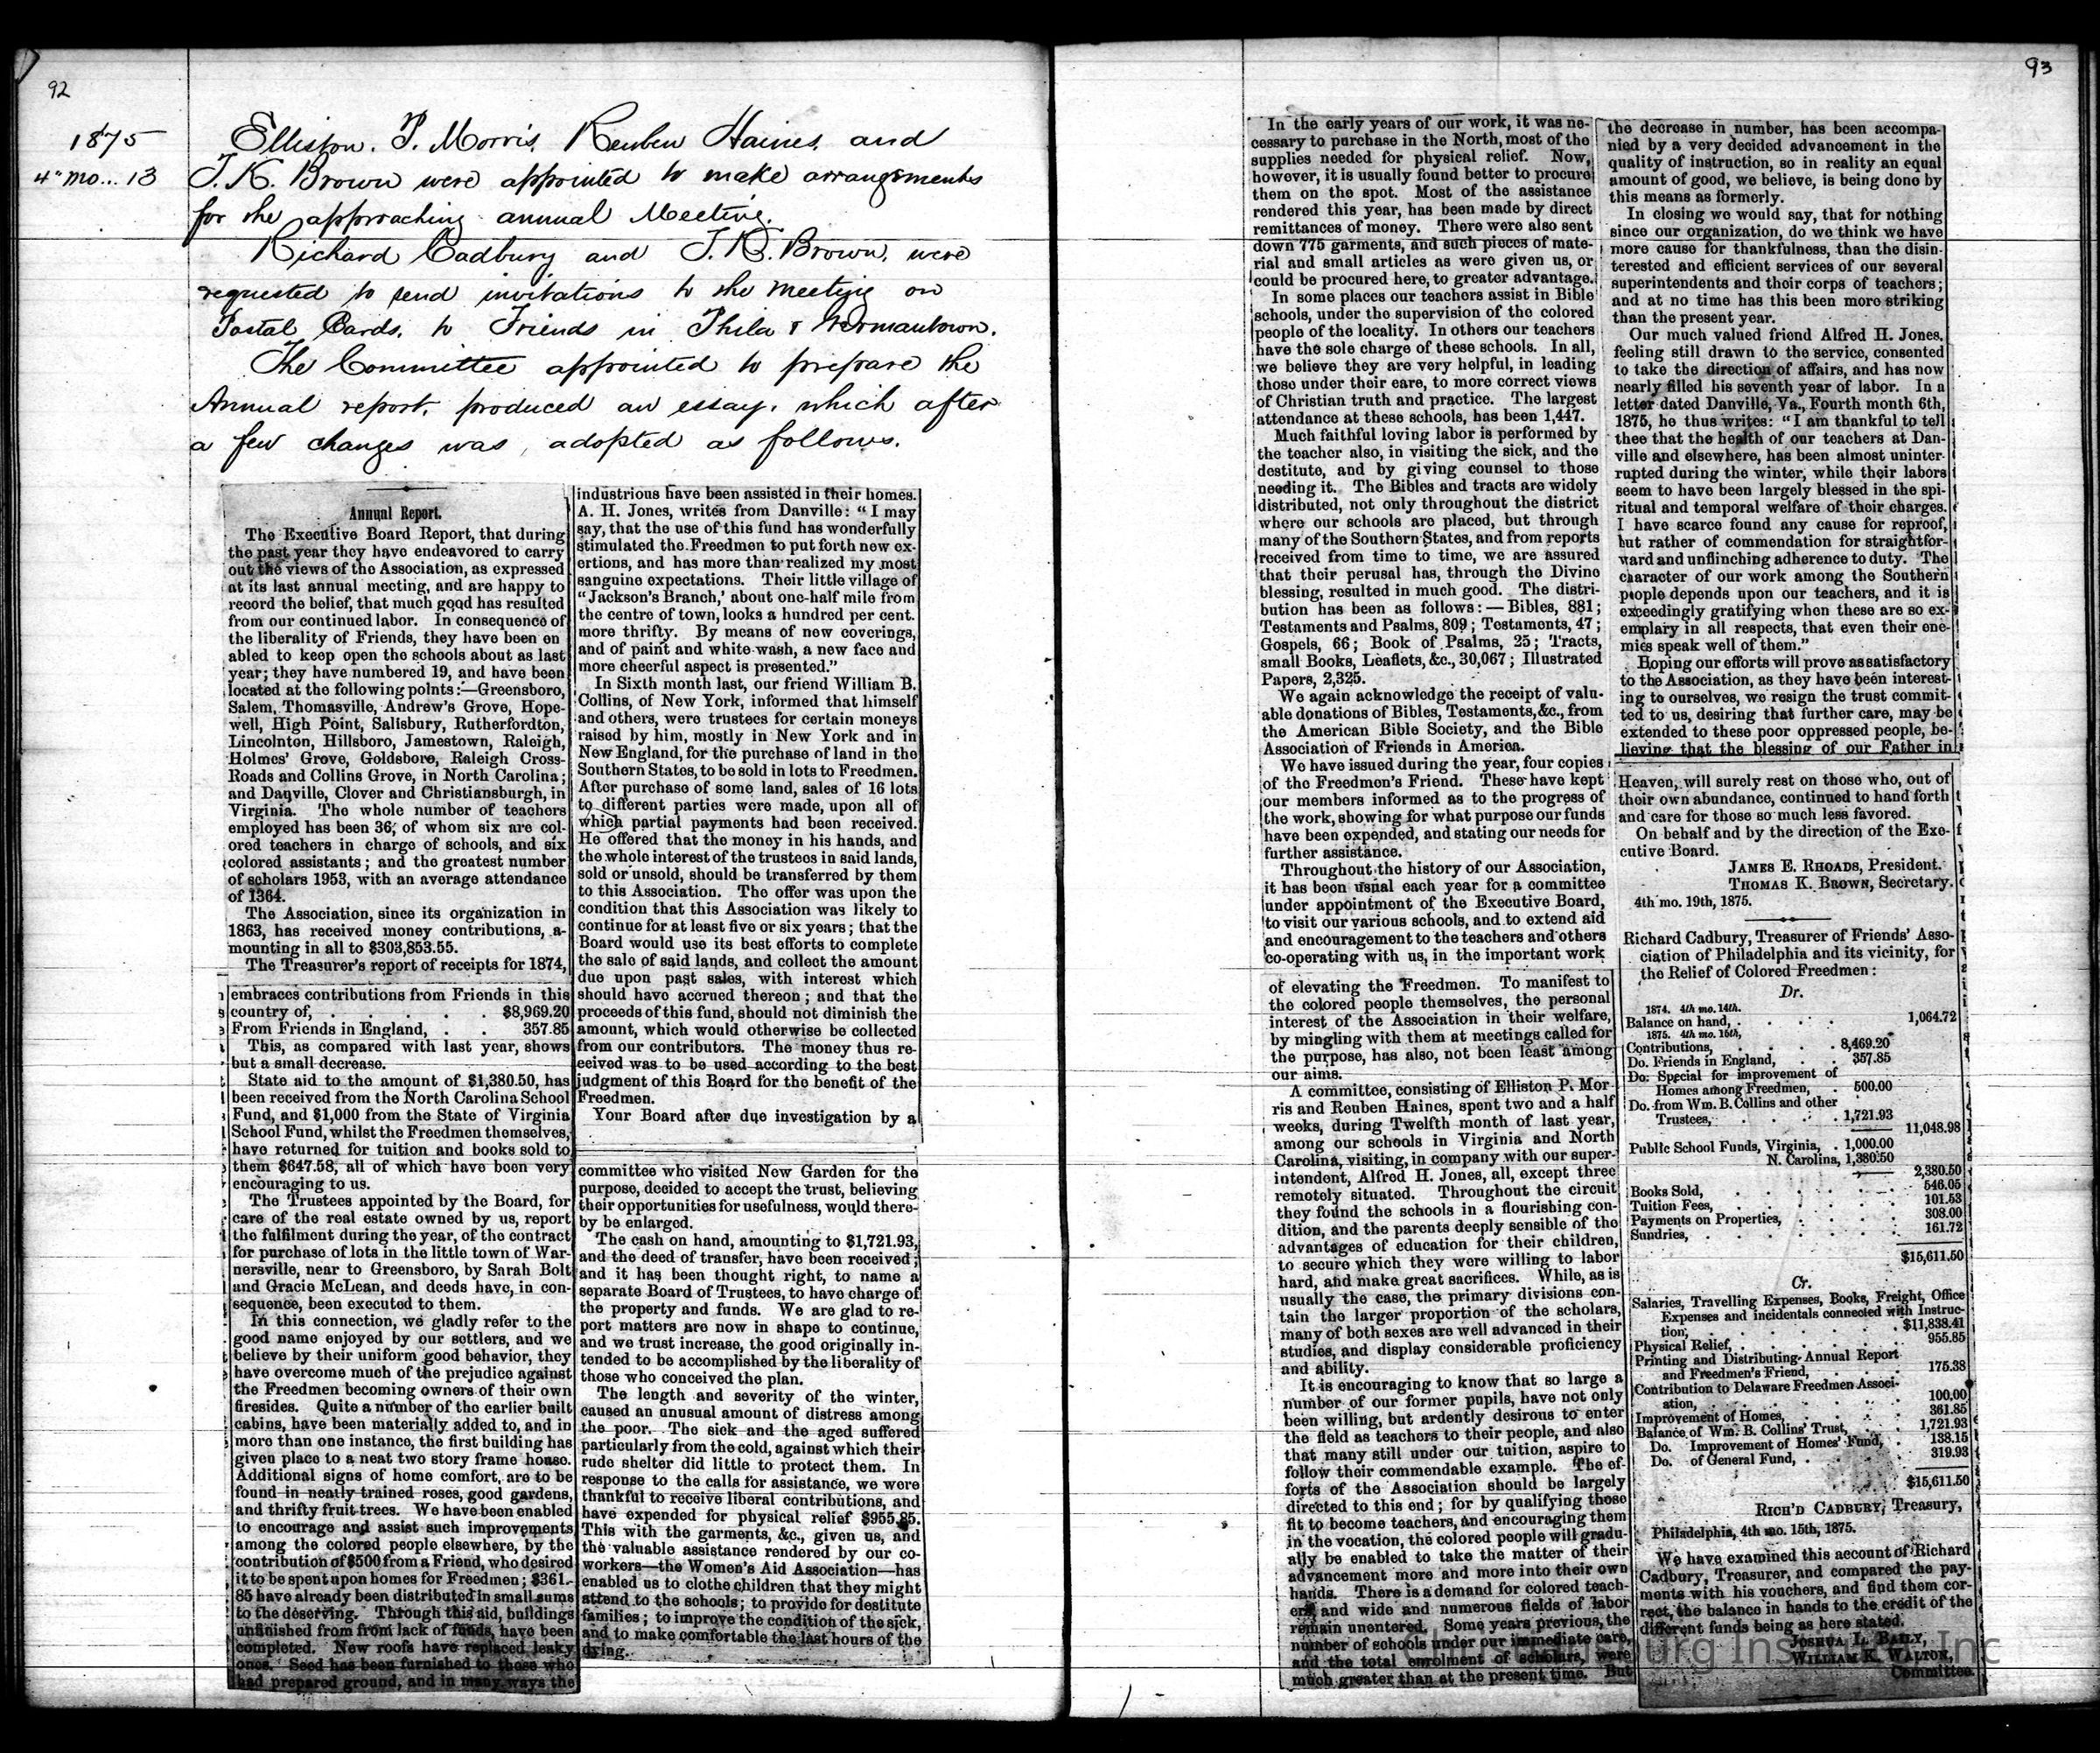 92
1875
4" mo... 13
Elliston. P. Morris, Reuben Haines, and
T. K. Brown were appointed to make arrangements
for the approaching annual Meeting.
Richard Cadbury and T. K. Brown, were
requested to send invitations to the meeting on
Postal Cards, to Friends in Phila & Germantown.
The Committee appointed to prepare the
Annual report, produced an essay, which after
a few changes was, adopted as follows.
Annual Report.
The Executive Board Report, that during
the past year they have endeavored to carry
out the views of the Association, as expressed
at its last annual meeting, and are happy to
record the belief, that much good has resulted
from our continued labor. In consequence of
the liberality of Friends, they have been en
abled to keep open the schools about as last
year; they have numbered 19, and have been
located at the following points:—Greensboro,
Salem, Thomasville, Andrew's Grove, Hope-
well, High Point, Salisbury, Rutherfordton,
Lincolnton, Hillsboro, Jamestown, Raleigh,
Holmes' Grove, Goldsboro, Raleigh Cross-
Roads and Collins Grove, in North Carolina;
and Danville, Clover and Christiansburgh, in
Virginia. The whole number of teachers
employed has been 36, of whom six are col-
ored teachers in charge of schools, and six
colored assistants; and the greatest number
of scholars 1953, with an average attendance
of 1364.
The Association, since its organization in
1863, has received money contributions, a-
mounting in all to $303,853.55.
The Treasurer's report of receipts for 1874,
embraces contributions from Friends in this
country of, . . . . . $8,969.20
From Friends in England, . . 357.85
This, as compared with last year, shows
but a small decrease.
State aid to the amount of $1,380.50, has
been received from the North Carolina School
Fund, and $1,000 from the State of Virginia
School Fund, whilst the Freedmen themselves,
have returned for tuition and books sold to
them $647.58, all of which have been very
encouraging to us.
The Trustees appointed by the Board, for
care of the real estate owned by us, report
the fulfilment during the year, of the contract
for purchase of lots in the little town of War-
nersville, near to Greensboro, by Sarah Bolt
and Gracie McLean, and deeds have, in con-
sequence, been executed to them.
In this connection, we gladly refer to the
good name enjoyed by our settlers, and we
believe by their uniform good behavior, they
have overcome much of the prejudice against
the Freedmen becoming owners of their own
firesides. Quite a number of the earlier built
cabins, have been materially added to, and in
more than one instance, the first building has
given place to a neat two story frame house.
Additional signs of home comfort, are to be
found in neatly trained roses, good gardens,
and thrifty fruit-trees. We have been enabled
to encourage and assist such improvements
among the colored people elsewhere, by the
contribution of $500 from a Friend, who desired
it to be spent upon homes for Freedmen; $361.-
85 have already been distributed in small sums
to the deserving. Through this aid, buildings
unfinished from from lack of funds, have been
completed. New roofs have replaced leaky
ones. Seed has been furnished to those who
had prepared ground, and in many ways the
industrious have been assisted in their homes.
A. H. Jones, writes from Danville: "I may
say, that the use of this fund has wonderfully
stimulated the Freedmen to put forth new ex-
ertions, and has more than realized my most
sanguine expectations. Their little village of
"Jackson's Branch,' about one-half mile from
the centre of town, looks a hundred per cent.
more thrifty. By means of new coverings,
and of paint and white-wash, a new face and
more cheerful aspect is presented."
In Sixth month last, our friend William B.
Collins, of New York, informed that himself
and others, were trustees for certain moneys
raised by him, mostly in New York and in
New England, for the purchase of land in the
Southern States, to be sold in lots to Freedmen.
After purchase of some land, sales of 16 lots
to different parties were made, upon all of
which partial payments had been received.
He offered that the money in his hands, and
the whole interest of the trustees in said lands,
sold or unsold, should be transferred by them
to this Association. The offer was upon the
condition that this Association was likely to
continue for at least five or six years; that the
Board would use its best efforts to complete
the sale of said lands, and collect the amount
due upon past sales, with interest which
should have accrued thereon; and that the
proceeds of this fund, should not diminish the
amount, which would otherwise be collected
from our contributors. The money thus re-
ceived was to be used according to the best
judgment of this Board for the benefit of the
Freedmen.
Your Board after due investigation by a
committee who visited New Garden for the
purpose, decided to accept the trust, believing
their opportunities for usefulness, would there-
by be enlarged.
The cash on hand, amounting to $1,721.93,
and the deed of transfer, have been received;
and it has been thought right, to name a
separate Board of Trustees, to have charge of
the property and funds. We are glad to re-
port matters are now in shape to continue,
and we trust increase, the good originally in-
tended to be accomplished by the liberality of
those who conceived the plan.
The length and severity of the winter,
caused an unusual amount of distress among
the poor. The sick and the aged suffered
particularly from the cold, against which their
rude shelter did little to protect them. In
response to the calls for assistance, we were
thankful to receive liberal contributions, and
have expended for physical relief $955.85.
This with the garments, &c., given us, and
the valuable assistance rendered by our co-
workers—the Women's Aid Association—has
enabled us to clothe children that they might
attend to the schools; to provide for destitute
families; to improve the condition of the sick,
and to make comfortable the last hours of the
dying.
93
In the early years of our work, it was ne-
cessary to purchase in the North, most of the
supplies needed for physical relief. Now,
however, it is usually found better to procure
them on the spot. Most of the assistance
rendered this year, has been made by direct
remittances of money. There were also sent
down 775 garments, and such pieces of mate-
rial and small articles as were given us, or
could be procured here, to greater advantage.
In some places our teachers assist in Bible
schools, under the supervision of the colored
people of the locality. In others our teachers
have the sole charge of these schools. In all,
we believe they are very helpful, in leading
those under their care, to more correct views
of Christian truth and practice. The largest
attendance at these schools, has been 1,447.
Much faithful loving labor is performed by
the teacher also, in visiting the sick, and the
destitute, and by giving counsel to those
needing it. The Bibles and tracts are widely
distributed, not only throughout the district
where our schools are placed, but through
many of the Southern States, and from reports
received from time to time, we are assured
that their perusal has, through the Divine
blessing, resulted in much good. The distri-
bution has been as follows:—Bibles, 881;
Testaments and Psalms, 809; Testaments, 47;
Gospels, 66; Book of Psalms, 25; Tracts,
small Books, Leaflets, &c., 30,067; Illustrated
Papers, 2,325.
We again acknowledge the receipt of valu-
able donations of Bibles, Testaments, &c., from
the American Bible Society, and the Bible
Association of Friends in America.
We have issued during the year, four copies
of the Freedmen's Friend. These have kept
our members informed as to the progress of
the work, showing for what purpose our funds
have been expended, and stating our needs for
further assistance.
Throughout the history of our Association,
it has been usual each year for a committee
under appointment of the Executive Board,
to visit our various schools, and to extend aid
and encouragement to the teachers and others
co-operating with us, in the important work
of elevating the Freedmen. To manifest to
the colored people themselves, the personal
interest of the Association in their welfare,
by mingling with them at meetings called for
the purpose, has also, not been least among
our aims.
A committee, consisting of Elliston P. Mor-
ris and Reuben Haines, spent two and a half
weeks, during Twelfth month of last year,
among our schools in Virginia and North
Carolina, visiting, in company with our super-
intendent, Alfred H. Jones, all, except three
remotely situated. Throughout the circuit
they found the schools in a flourishing con-
dition, and the parents deeply sensible of the
advantages of education for their children,
to secure which they were willing to labor
hard, and make great sacrifices. While, as is
usually the case, the primary divisions con-
tain the larger proportion of the scholars,
many of both sexes are well advanced in their
studies, and display considerable proficiency
and ability.
It is encouraging to know that so large a
number of our former pupils, have not only
been willing, but ardently desirous to enter
the field as teachers to their people, and also
that many still under our tuition, aspire to
follow their commendable example. The ef-
forts of the Association should be largely
directed to this end; for by qualifying those
fit to become teachers, and encouraging them
in the vocation, the colored people will gradu-
ally be enabled to take the matter of their
advancement more and more into their own
hands. There is a demand for colored teach-
ers, and wide and numerous fields of labor
remain unentered. Some years previous, the
number of schools under our immediate care,
and the total enrolment of scholars, were
much greater than at the present time. But
the decrease in number, has been accompa-
nied by a very decided advancement in the
quality of instruction, so in reality an equal
amount of good, we believe, is being done by
this means as formerly.
In closing we would say, that for nothing
since our organization, do we think we have
more cause for thankfulness, than the disin-
terested and efficient services of our several
superintendents and their corps of teachers;
and at no time has this been more striking
than the present year.
Our much valued friend Alfred H. Jones,
feeling still drawn to the service, consented
to take the direction of affairs, and has now
nearly filled his seventh year of labor. In a
letter dated Danville, Va., Fourth month 6th,
1875, he thus writes: "I am thankful to tell
thee that the health of our teachers at Dan-
ville and elsewhere, has been almost uninter-
rupted during the winter, while their labors
seem to have been largely blessed in the spi-
ritual and temporal welfare of their charges.
I have scarce found any cause for reproof,
but rather of commendation for straightfor-
ward and unflinching adherence to duty. The
character of our work among the Southern
people depends upon our teachers, and it is
exceedingly gratifying when these are so ex-
emplary in all respects, that even their ene-
mies speak well of them."
Hoping our efforts will prove as satisfactory
to the Association, as they have been interest-
ing to ourselves, we resign the trust commit-
ted to us, desiring that further care, may be
extended to these poor oppressed people, be-
lieving that the blessing of our Father in
Heaven, will surely rest on those who, out of
their own abundance, continued to hand forth
and care for those so much less favored.
On behalf and by the direction of the Exe-
cutive Board.
JAMES E. RHOADS, President.
THOMAS K. BROWN, Secretary.
4th mo. 19th, 1875.
Richard Cadbury, Treasurer of Friends' Asso-
ciation of Philadelphia and its vicinity, for
the Relief of Colored Freedmen:
Dr.
1874. 4th mo. 14th.
Balance on hand, . . . . 1,064.72
1875. 4th mo. 15th,
Contributions, . . . . 8,469.20
Do. Friends in England, . . 357.85
Do. Special for improvement of
Homes among Freedmen, . 500.00
Do. from Wm. B. Collins and other
Trustees, . . . . 1,721.93
11,048.98
Public School Funds, Virginia, . 1,000.00
N. Carolina, 1,380.50
2,380.50
Books Sold, . . . . . 546.05
Tuition Fees, . . . . . 101.53
Payments on Properties, . . . 308.00
Sundries, . . . . . 161.72
$15,611.50
Cr.
Salaries, Travelling Expenses, Books, Freight, Office
Expenses and incidentals connected with Instruc-
tion, . . . . . $11,838.41
Physical Relief, . . . . 955.85
Printing and Distributing Annual Report
and Freedmen's Friend, . . . 175.38
Contribution to Delaware Freedmen Associ-
ation, . . . . . 100.00
Improvement of Homes, . . . 361.85
Balance of Wm. B. Collins' Trust, . . 1,721.93
Do. Improvement of Homes' Fund, . 138.15
Do. of General Fund, . . . 319.93
$15,611.50
RICH'D CADBURY, Treasury,
Philadelphia, 4th mo. 15th, 1875.
We have examined this account of Richard
Cadbury, Treasurer, and compared the pay-
ments with his vouchers, and find them cor-
rect, the balance in hands to the credit of the
different funds being as here stated.
JOSHUA L. BAILY,
WILLIAM K. WALTON,
Committee.